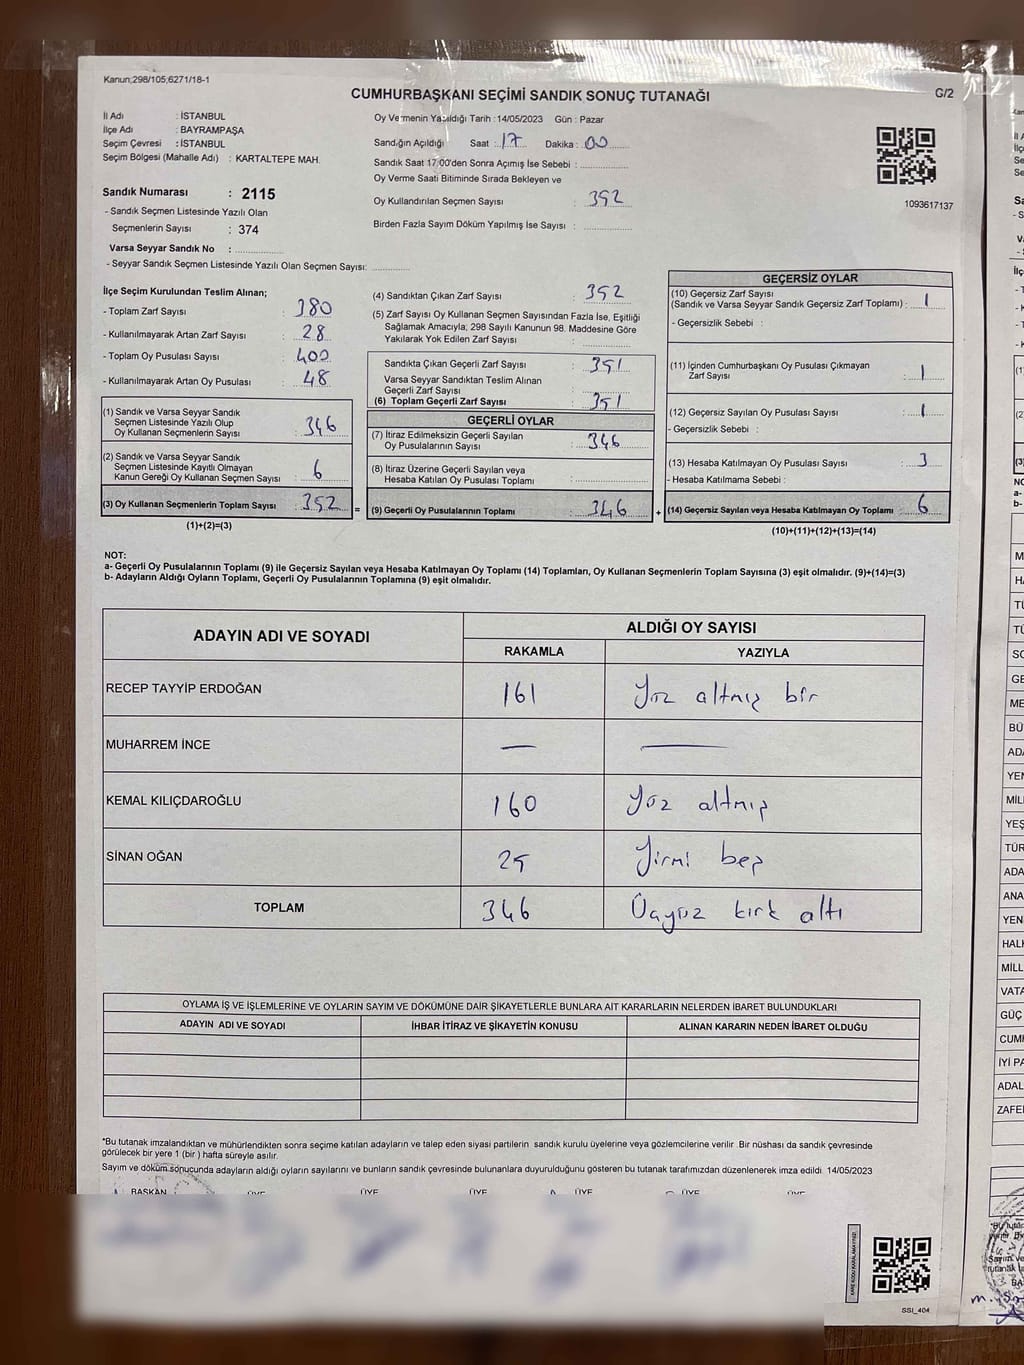 Kanun;298/105;6271/18-1
CUMHURBAŞKANI SEÇİMİ SANDIK SONUÇ TUTANAĞI
G/2
İl Adı : İSTANBUL
İlçe Adı : BAYRAMPAŞA
Seçim Çevresi : İSTANBUL
Seçim Bölgesi (Mahalle Adı) : KARTALTEPE MAH.
Sandık Numarası : 2115
- Sandık Seçmen Listesinde Yazılı Olan
Seçmenlerin Sayısı : 374
Varsa Seyyar Sandık No :
- Seyyar Sandık Seçmen Listesinde Yazılı Olan Seçmen Sayısı:
Oy Vermenin Yapıldığı Tarih :14/05/2023 Gün : Pazar
Sandığın Açıldığı Saat : 17 Dakika : 00
Sandık Saat 17:00'den Sonra Açımış İse Sebebi :
Oy Verme Saati Bitiminde Sırada Bekleyen ve
Oy Kullandırılan Seçmen Sayısı : 352
Birden Fazla Sayım Döküm Yapılmış İse Sayısı :
1093617137
İlçe Seçim Kurulundan Teslim Alınan;
- Toplam Zarf Sayısı : 380
- Kullanılmayarak Artan Zarf Sayısı : 28
- Toplam Oy Pusulası Sayısı : 400
- Kullanılmayarak Artan Oy Pusulası : 48
(1) Sandık ve Varsa Seyyar Sandık
Seçmen Listesinde Yazılı Olup
Oy Kullanan Seçmenlerin Sayısı : 346
(2) Sandık ve Varsa Seyyar Sandık
Seçmen Listesinde Kayıtlı Olmayan
Kanun Gereği Oy Kullanan Seçmen Sayısı : 6
(3) Oy Kullanan Seçmenlerin Toplam Sayısı : 352 =
(1)+(2)=(3)
(4) Sandıktan Çıkan Zarf Sayısı : 352
(5) Zarf Sayısı Oy Kullanan Seçmen Sayısından Fazla İse, Eşitliği
Sağlamak Amacıyla; 298 Sayılı Kanunun 98. Maddesine Göre
Yakılarak Yok Edilen Zarf Sayısı :
Sandıkta Çıkan Geçerli Zarf Sayısı : 351
Varsa Seyyar Sandıktan Teslim Alınan
Geçerli Zarf Sayısı :
(6) Toplam Geçerli Zarf Sayısı : 351
GEÇERLİ OYLAR
(7) İtiraz Edilmeksizin Geçerli Sayılan
Oy Pusulalarının Sayısı : 346
(8) İtiraz Üzerine Geçerli Sayılan veya
Hesaba Katılan Oy Pusulası Toplamı :
(9) Geçerli Oy Pusulalarının Toplamı : 346 +
GEÇERSİZ OYLAR
(10) Geçersiz Zarf Sayısı
(Sandık ve Varsa Seyyar Sandık Geçersiz Zarf Toplamı) : 1
- Geçersizlik Sebebi :
(11) İçinden Cumhurbaşkanı Oy Pusulası Çıkmayan
Zarf Sayısı : 1
(12) Geçersiz Sayılan Oy Pusulası Sayısı : 1
- Geçersizlik Sebebi :
(13) Hesaba Katılmayan Oy Pusulası Sayısı : 3
- Hesaba Katılmama Sebebi :
(14) Geçersiz Sayılan veya Hesaba Katılmayan Oy Toplamı : 6
(10)+(11)+(12)+(13)=(14)
NOT:
a- Geçerli Oy Pusulalarının Toplamı (9) ile Geçersiz Sayılan veya Hesaba Katılmayan Oy Toplamı (14) Toplamları, Oy Kullanan Seçmenlerin Toplam Sayısına (3) eşit olmalıdır. (9)+(14)=(3)
b- Adayların Aldığı Oyların Toplamı, Geçerli Oy Pusulalarının Toplamına (9) eşit olmalıdır.
ADAYIN ADI VE SOYADI
ALDIĞI OY SAYISI
RAKAMLA YAZIYLA
RECEP TAYYİP ERDOĞAN 161 Yüz altmış bir
MUHARREM İNCE — —
KEMAL KILIÇDAROĞLU 160 Yüz altmış
SİNAN OĞAN 25 Yirmi beş
TOPLAM 346 Üçyüz kırk altı
OYLAMA İŞ VE İŞLEMLERİNE VE OYLARIN SAYIM VE DÖKÜMÜNE DAİR ŞİKAYETLERLE BUNLARA AİT KARARLARIN NELERDEN İBARET BULUNDUKLARI
ADAYIN ADI VE SOYADI İHBAR İTİRAZ VE ŞİKAYETİN KONUSU ALINAN KARARIN NEDEN İBARET OLDUĞU
*Bu tutanak imzalandıktan ve mühürlendikten sonra seçime katılan adayların ve talep eden siyasi partilerin sandık kurulu üyelerine veya gözlemcilerine verilir .Bir nüshası da sandık çevresinde
görülecek bir yere 1 (bir ) hafta süreyle asılır.
Sayım ve döküm sonucunda adayların aldığı oyların sayılarını ve bunların sandık çevresinde bulunanlara duyurulduğunu gösteren bu tutanak tarafımızdan düzenlenerek imza edildi. 14/05/2023
BAŞKAN ÜYE ÜYE ÜYE ÜYE ÜYE ÜYE
SSI_404